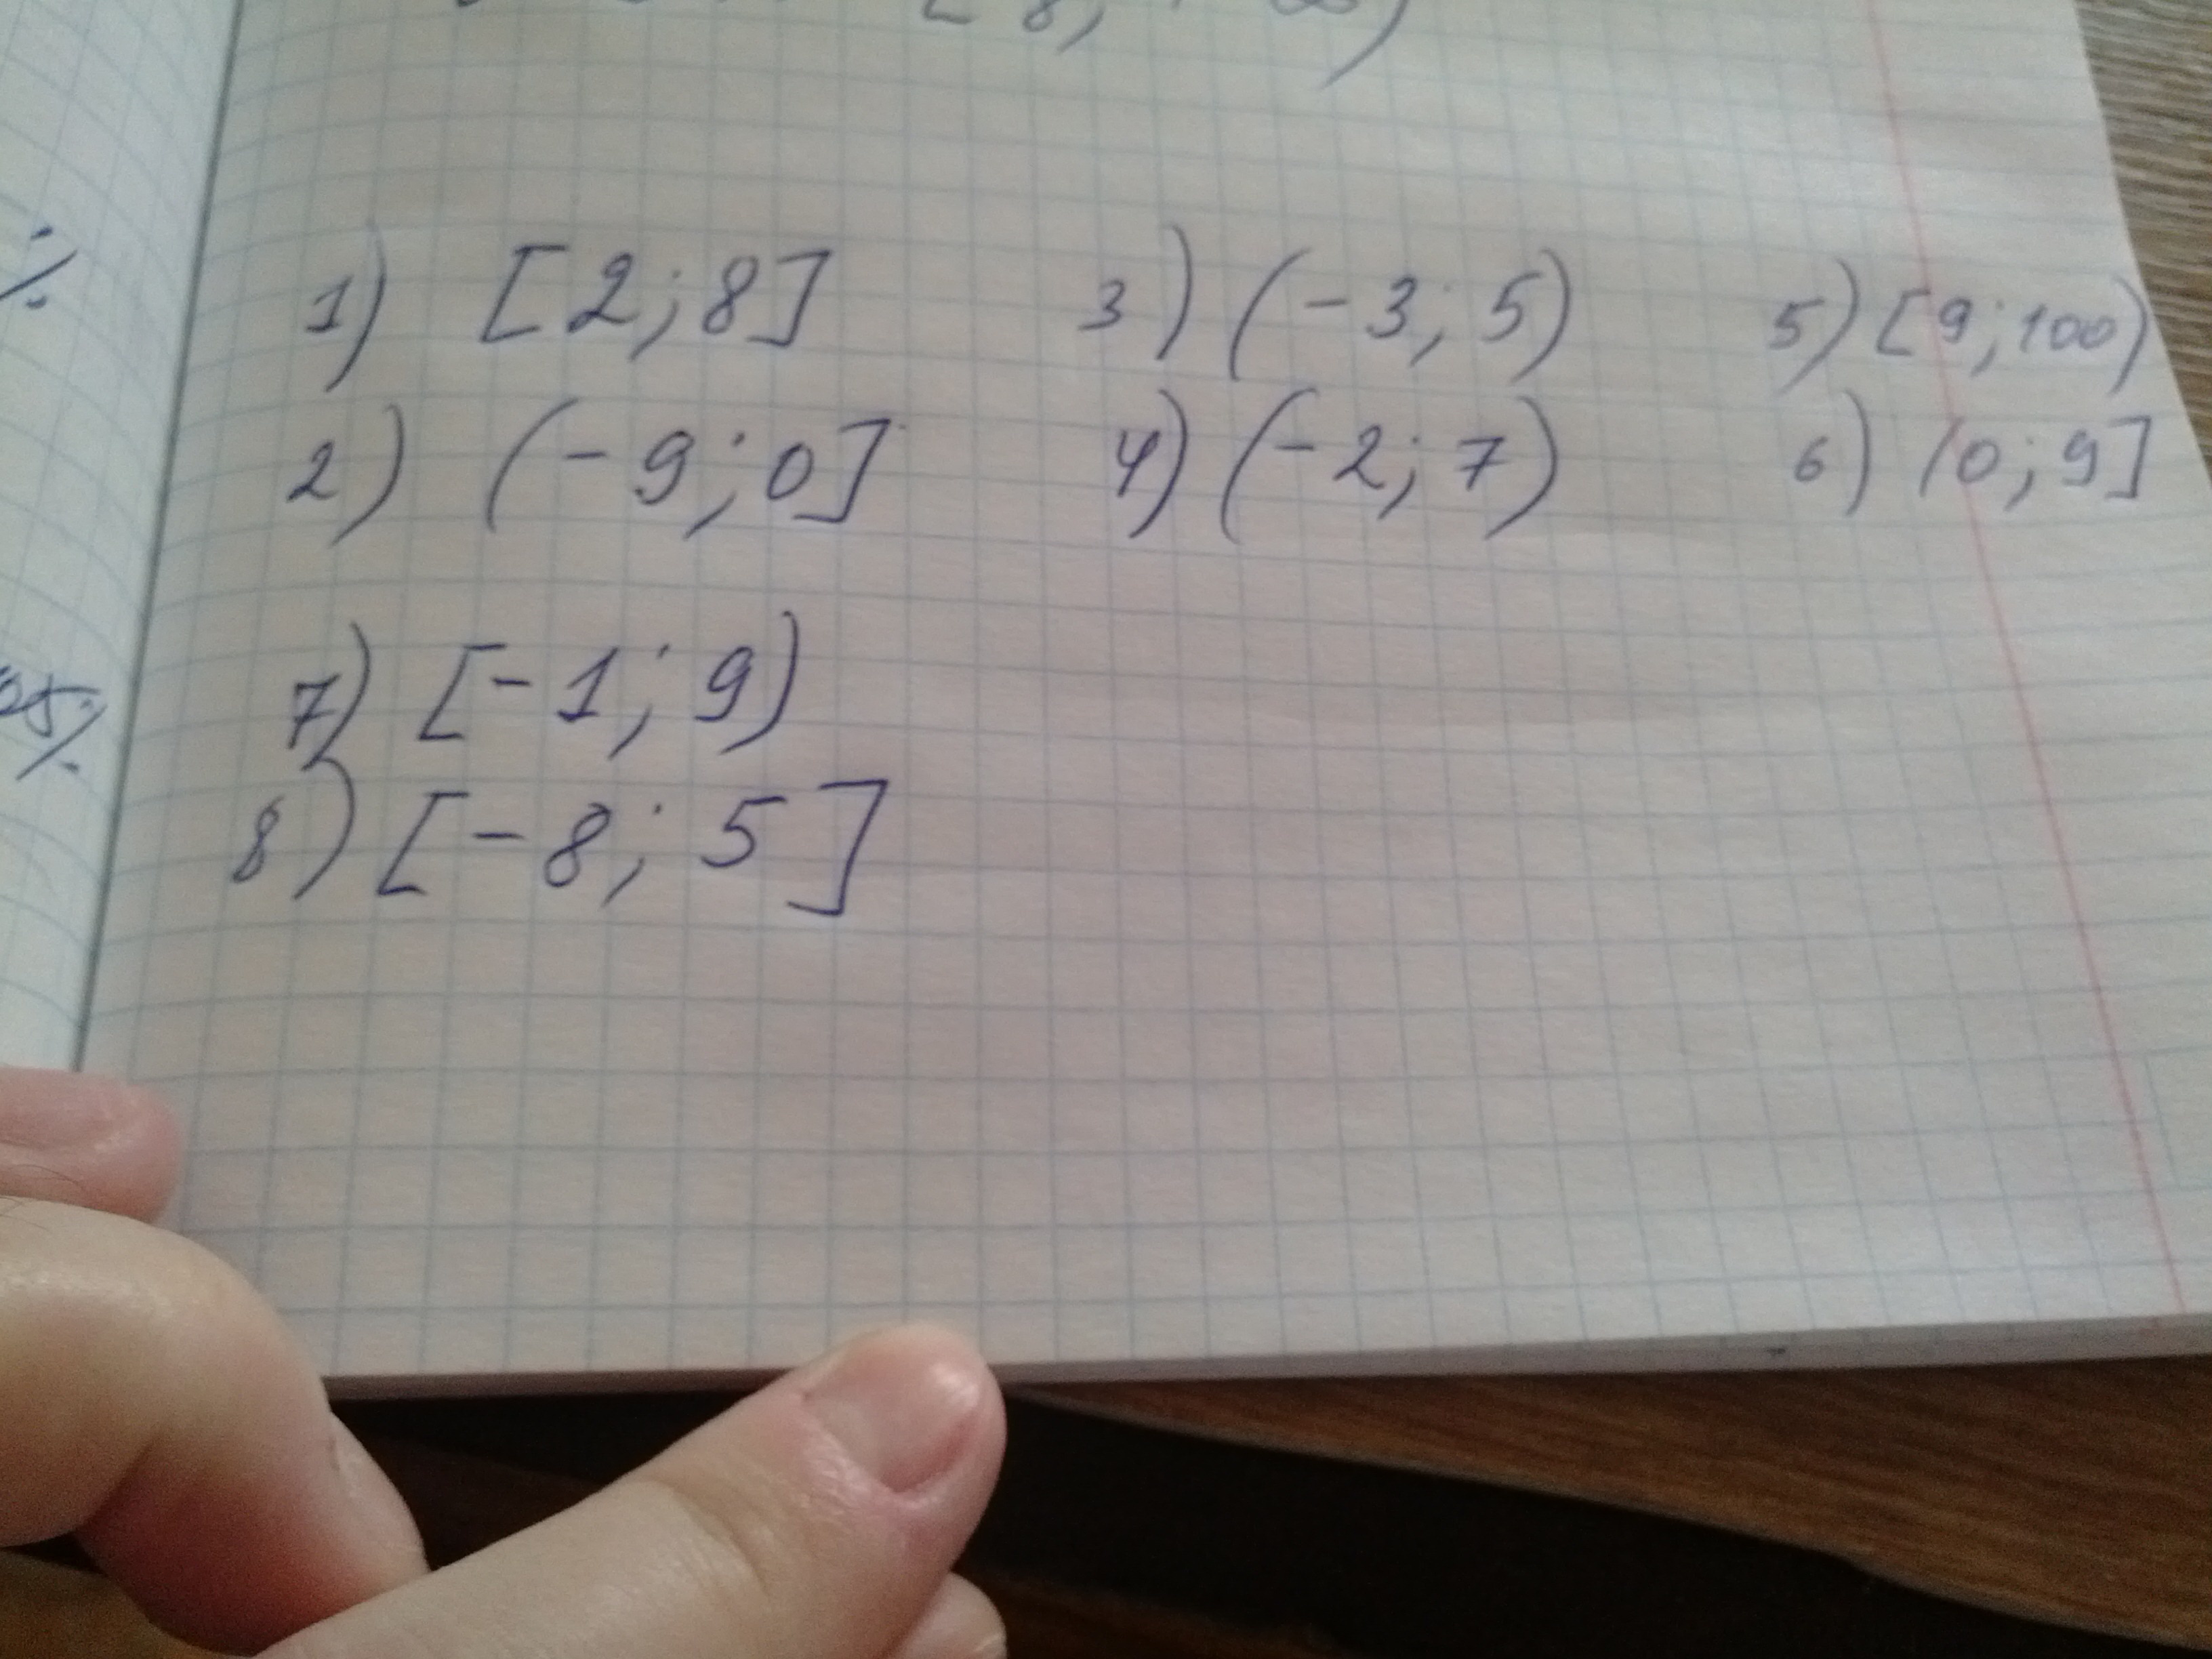 [8; + ∞)
%
1) [2; 8] 3) (-3; 5) 5) [9; 100)
2) (-9; 0] 4) (-2; 7) 6) (0; 9]
7) [-1; 9)
%
8) [-8; 5]